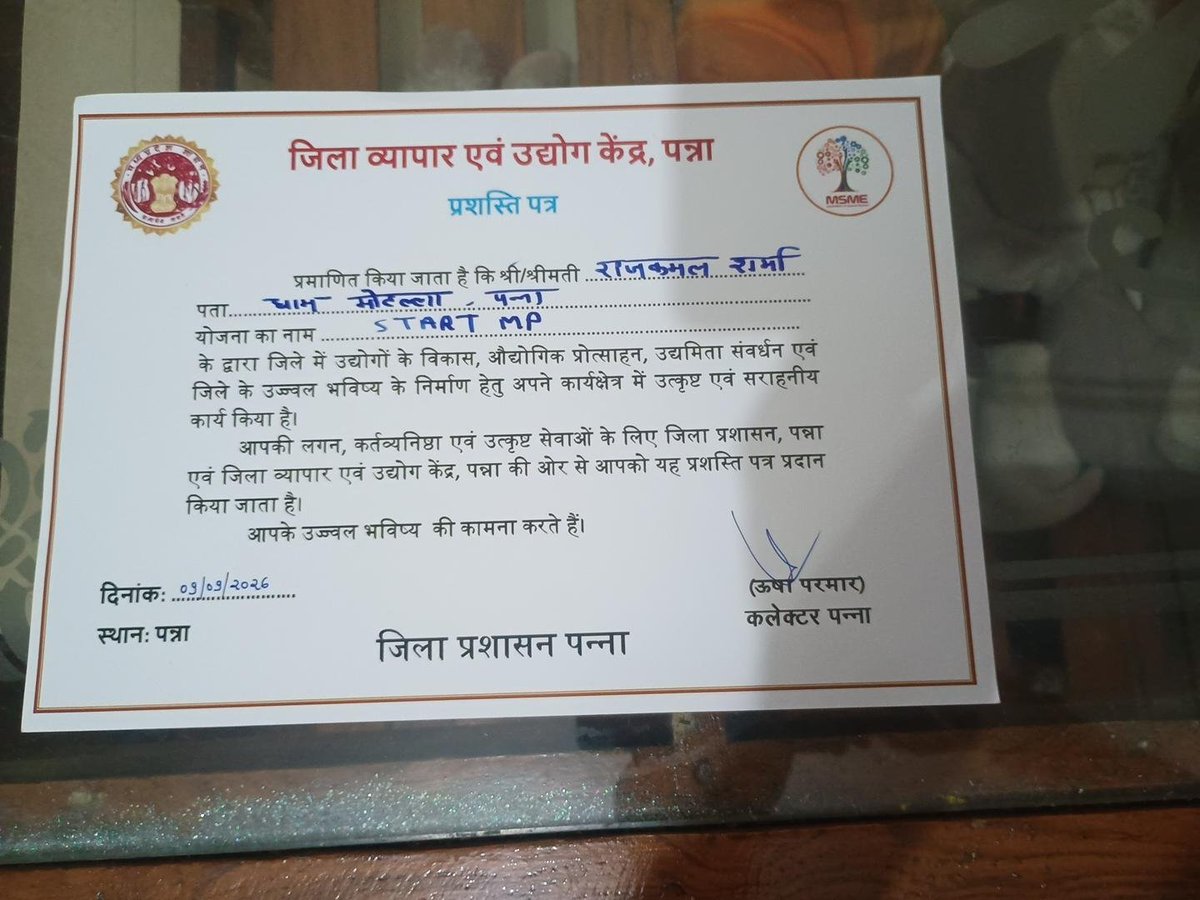 जिला व्यापार एवं उद्योग केंद्र, पन्ना
MSME
प्रशस्ति पत्र
प्रमाणित किया जाता है कि श्री/श्रीमती राजकमल शर्मा
पता धाम मोहल्ला, पन्ना
योजना का नाम START MP
के द्वारा जिले में उद्योगों के विकास, औद्योगिक प्रोत्साहन, उद्यमिता संवर्धन एवं
जिले के उज्ज्वल भविष्य के निर्माण हेतु अपने कार्यक्षेत्र में उत्कृष्ट एवं सराहनीय
कार्य किया है।
आपकी लगन, कर्तव्यनिष्ठा एवं उत्कृष्ट सेवाओं के लिए जिला प्रशासन, पन्ना
एवं जिला व्यापार एवं उद्योग केंद्र, पन्ना की ओर से आपको यह प्रशस्ति पत्र प्रदान
किया जाता है।
आपके उज्ज्वल भविष्य की कामना करते हैं।
दिनांक:
स्थान: पन्ना
(ऊषा परमार)
कलेक्टर पन्ना
जिला प्रशासन पन्ना